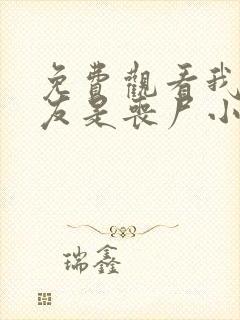 免費觀看我
友是喪尸小
瑞鑫